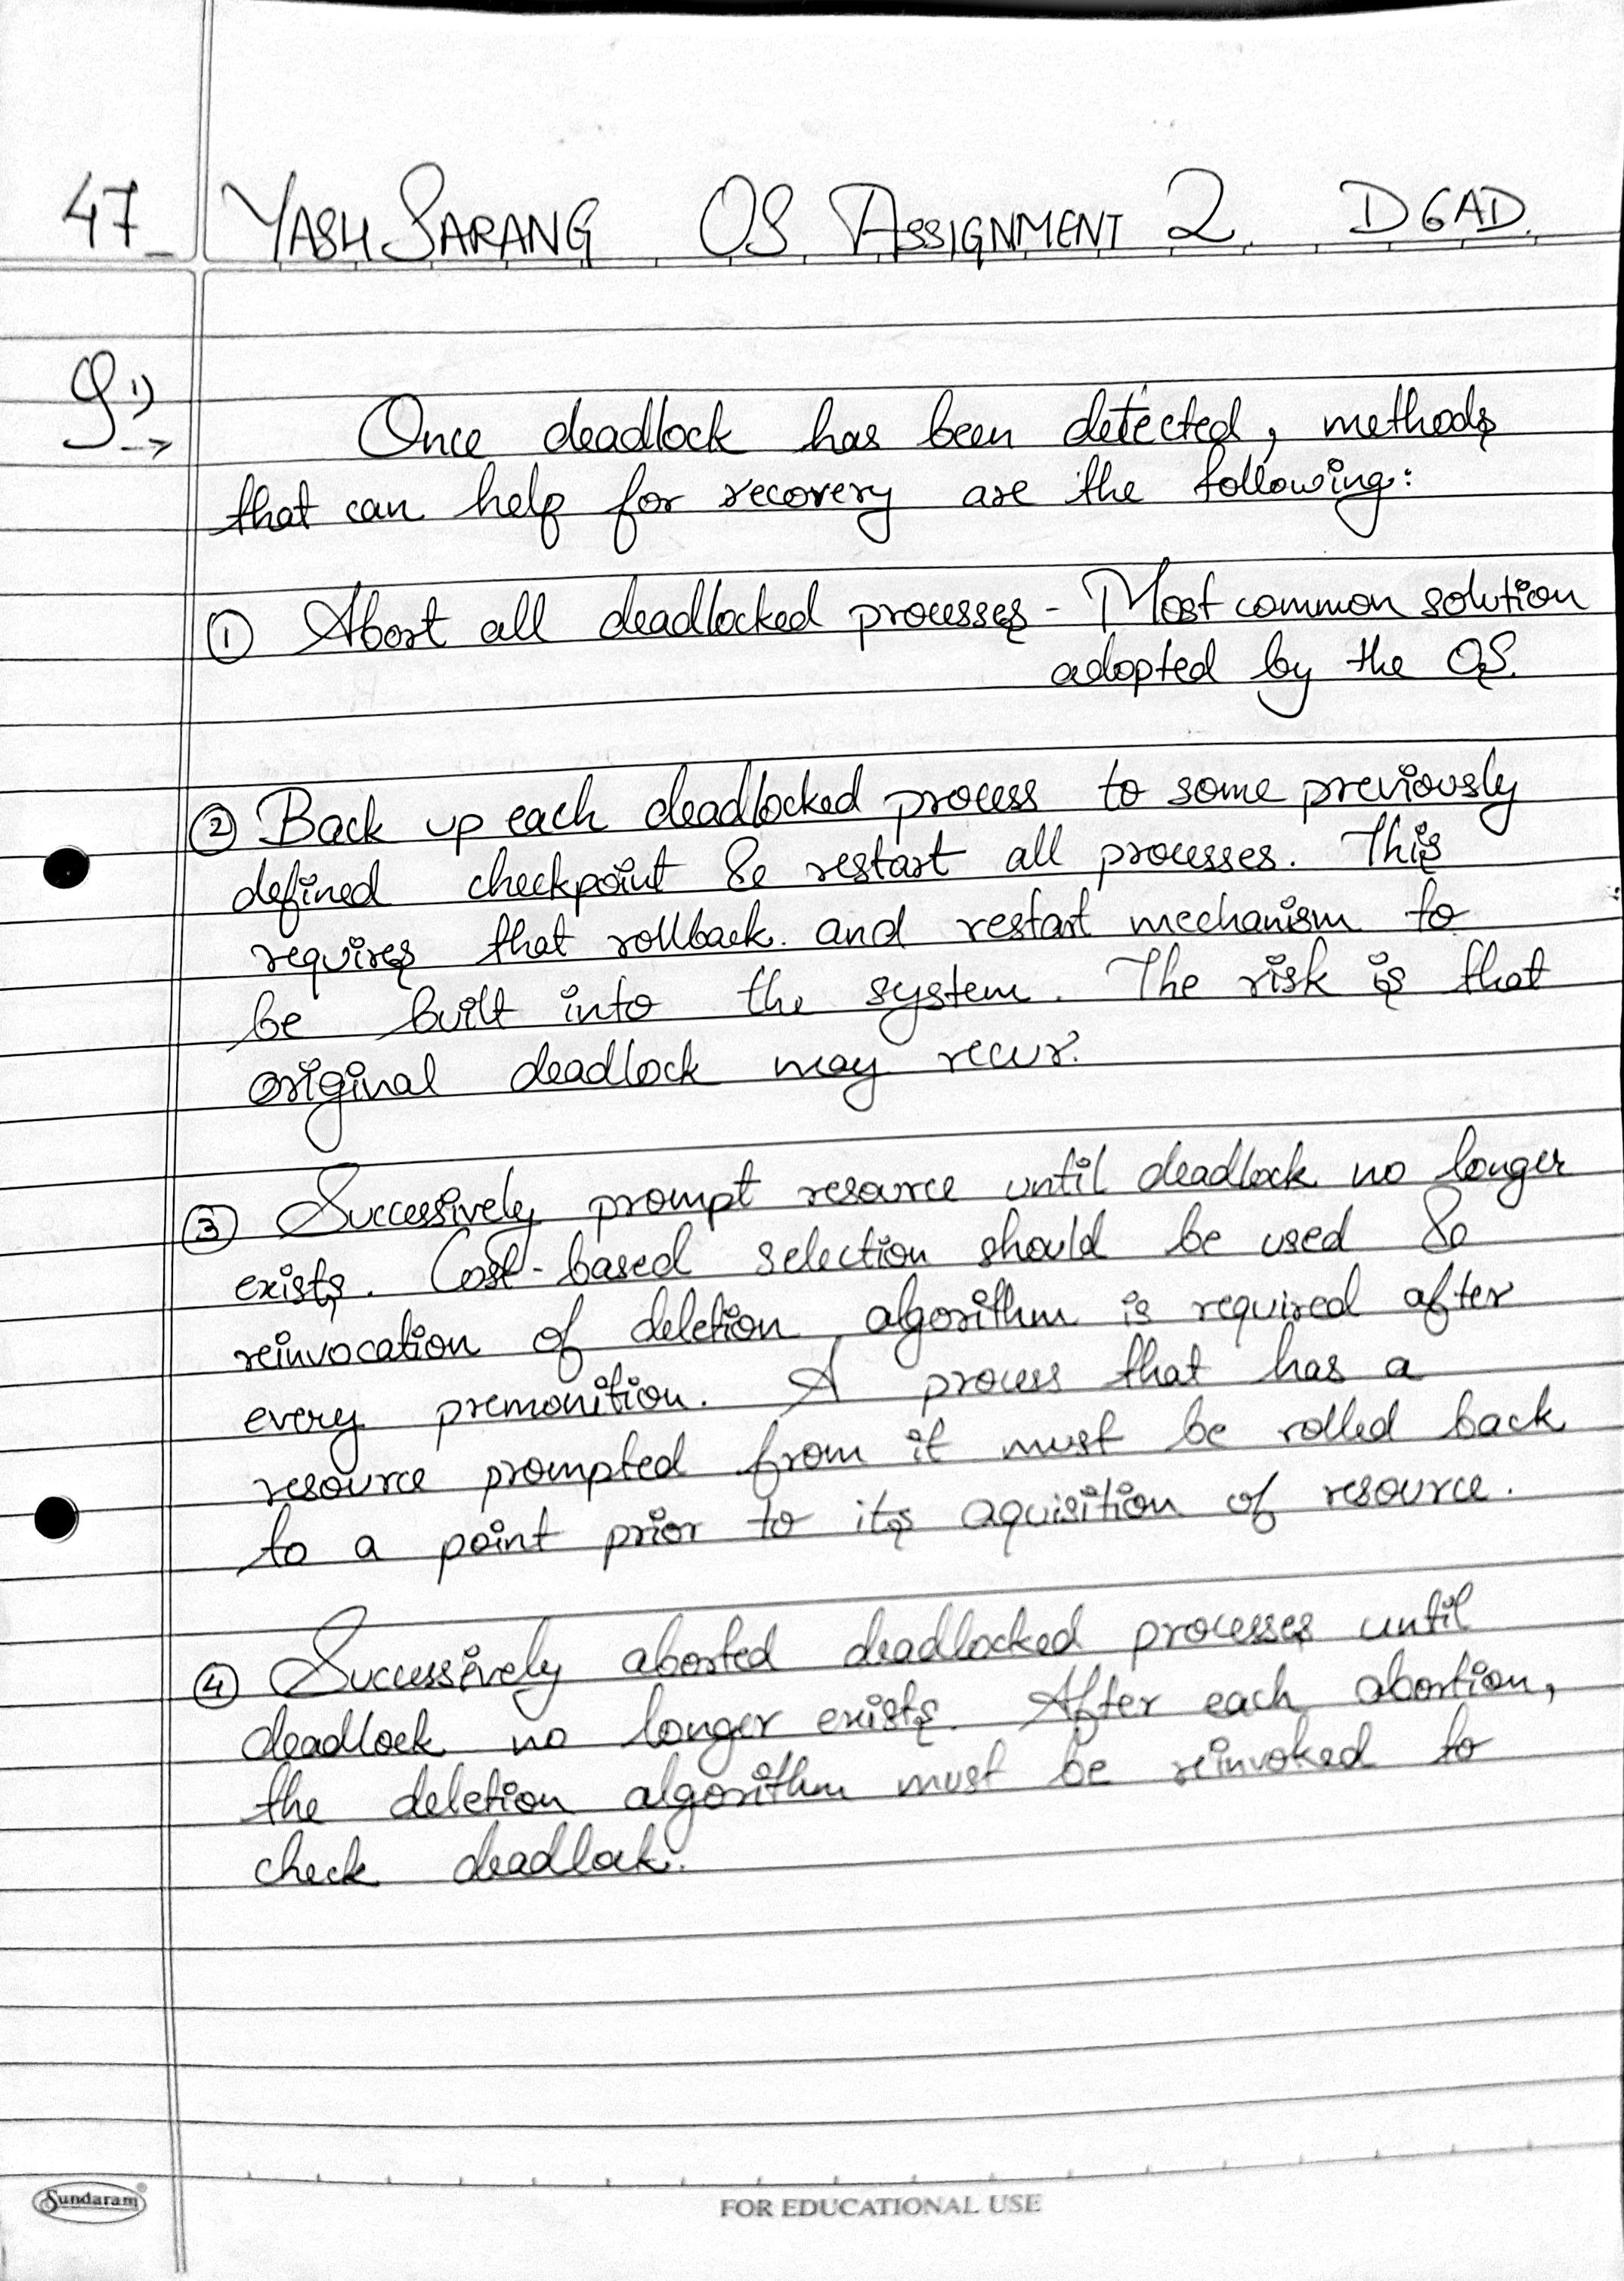 47 YASH SARANG OS ASSIGNMENT 2. D6AD.
Q1)
→ Once deadlock has been detected, methods
that can help for recovery are the following:
① Abort all deadlocked processes - Most common solution
adopted by the OS.
② Back up each deadlocked process to some previously
defined checkpoint & restart all processes. This
requires that rollback and restart mechanism to
be built into the system. The risk is that
original deadlock may recur.
③ Successively prompt resource until deadlock no longer
exists. Cost-based selection should be used &
reinvocation of deletion algorithm is required after
every premonition. A process that has a
resource prompted from it must be rolled back
to a point prior to its aquisition of resource.
④ Successively aborted deadlocked processes until
deadlock no longer exists. After each abortion,
the deletion algorithm must be reinvoked to
check deadlock.
Sundaram
FOR EDUCATIONAL USE